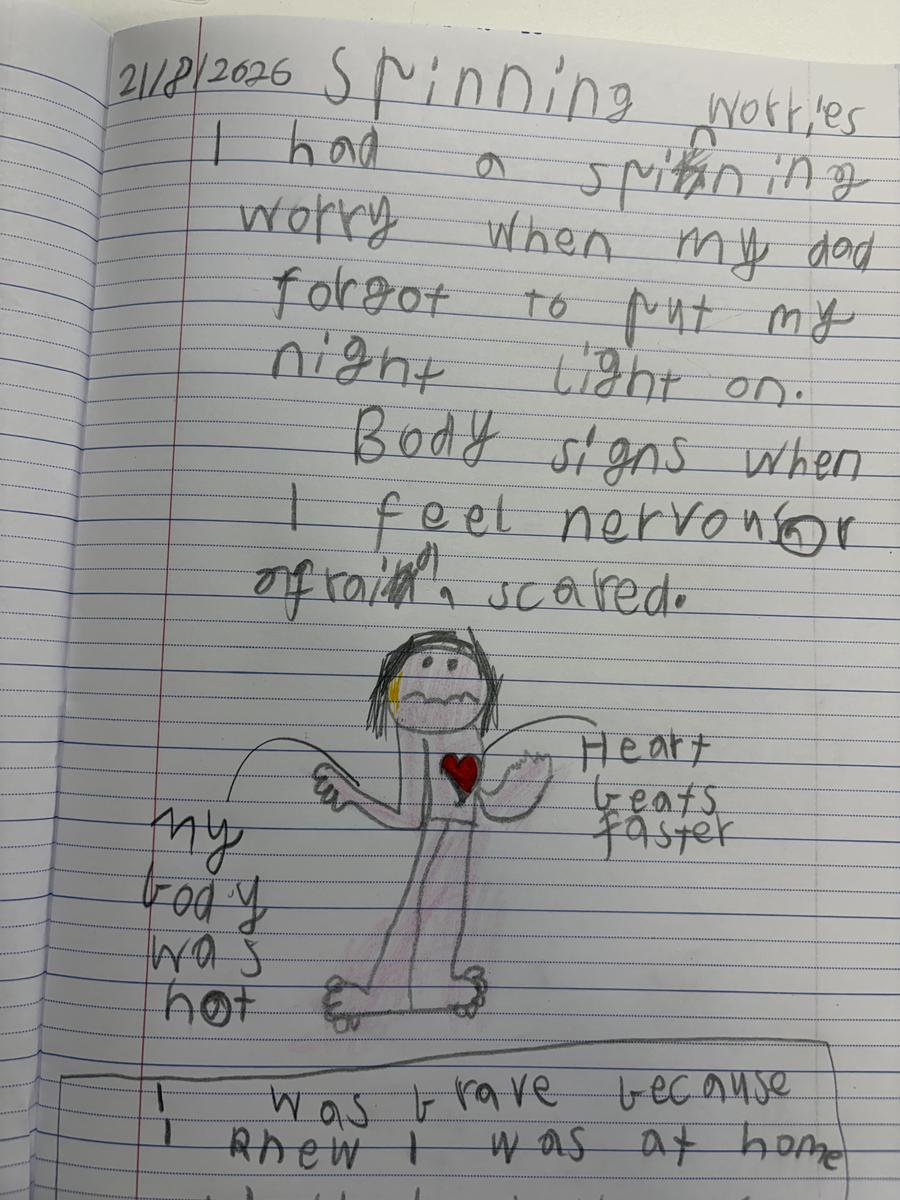 21/8/2026 Spinning worries
I had a spinning
worry when my dad
forgot to put my
night light on.
Body signs when
I feel nervous or
afraid, scared.
Heart
beats
faster
my
body
was
hot
I was brave because
I knew I was at home